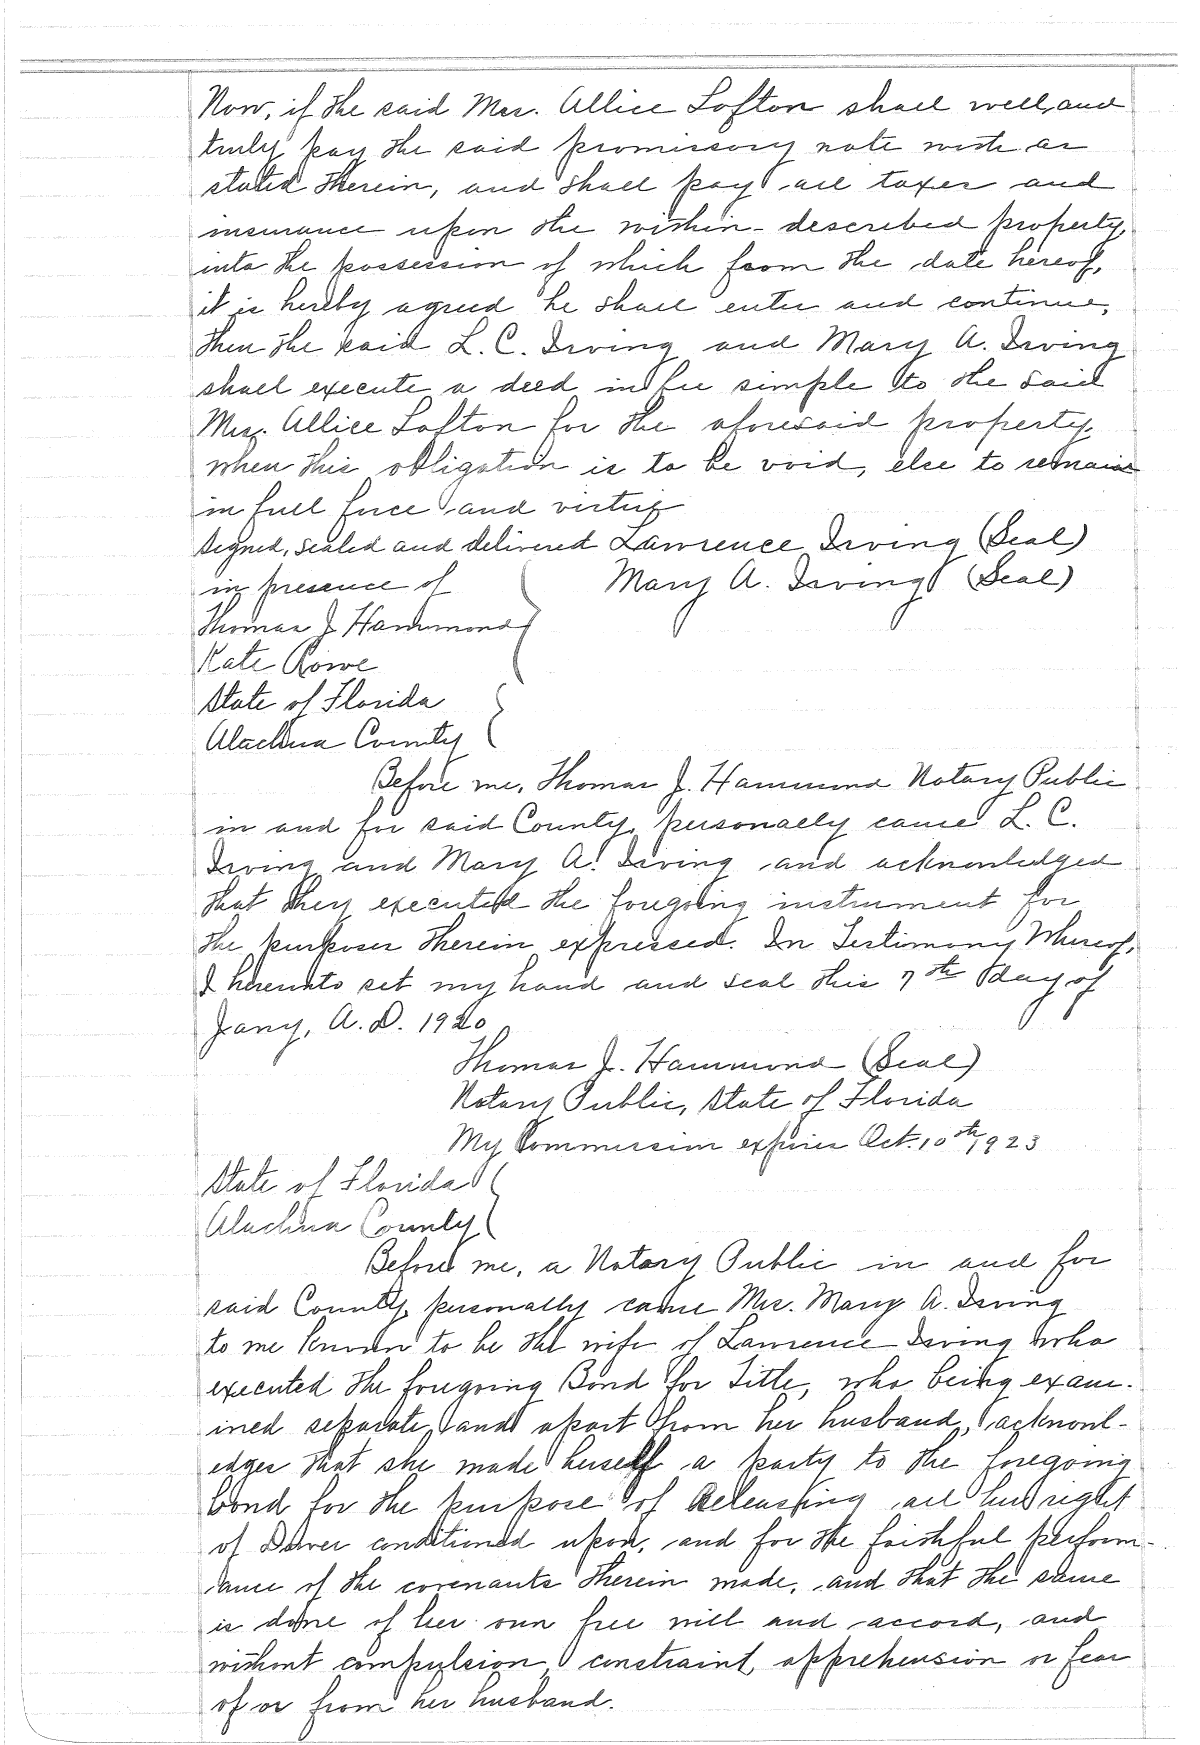 Now, if the said Mrs. Allice Lofton shall well, and
truly pay the said promissory note with as
stated therein, and shall pay all taxes and
insurance upon the within-described property,
into the possession of which from the date hereof,
it is hereby agreed he shall enter and continue,
then the said L. C. Irving and Mary A. Irving
shall execute a deed in fee simple to the said
Mrs. Allice Lofton for the aforesaid property,
when this obligation is to be void, else to remain
in full force and virtue
Signed, sealed and delivered Lawrence Irving (Seal)
in presence of Mary A. Irving (Seal)
Thomas J Hammond
Kate Rowe
State of Florida
Alachua County
Before me, Thomas J. Hammond Notary Public
in and for said County, personally came L. C.
Irving and Mary A. Irving and acknowledged
that they executed the foregoing instrument for
the purposes therein expressed. In Testimony Whereof,
I hereunto set my hand and seal this 7th day of
Jany, A. D. 1920
Thomas J. Hammond (Seal)
Notary Public, State of Florida
My Commission expires Oct. 10th, 1923
State of Florida
Alachua County
Before me, a Notary Public in and for
said County, personally came Mrs. Mary A. Irving
to me known to be the wife of Lawrence Irving who
executed the foregoing Bond for Title, who being exam-
ined separate, and apart from her husband, acknowl-
edges that she made herself a party to the foregoing
bond for the purpose of Releasing all her right
of Dower conditioned upon, and for the faithful perform-
ance of the covenants therein made, and that the same
is done of her own free will and accord, and
without compulsion, constraint, apprehension or fear
of or from her husband.